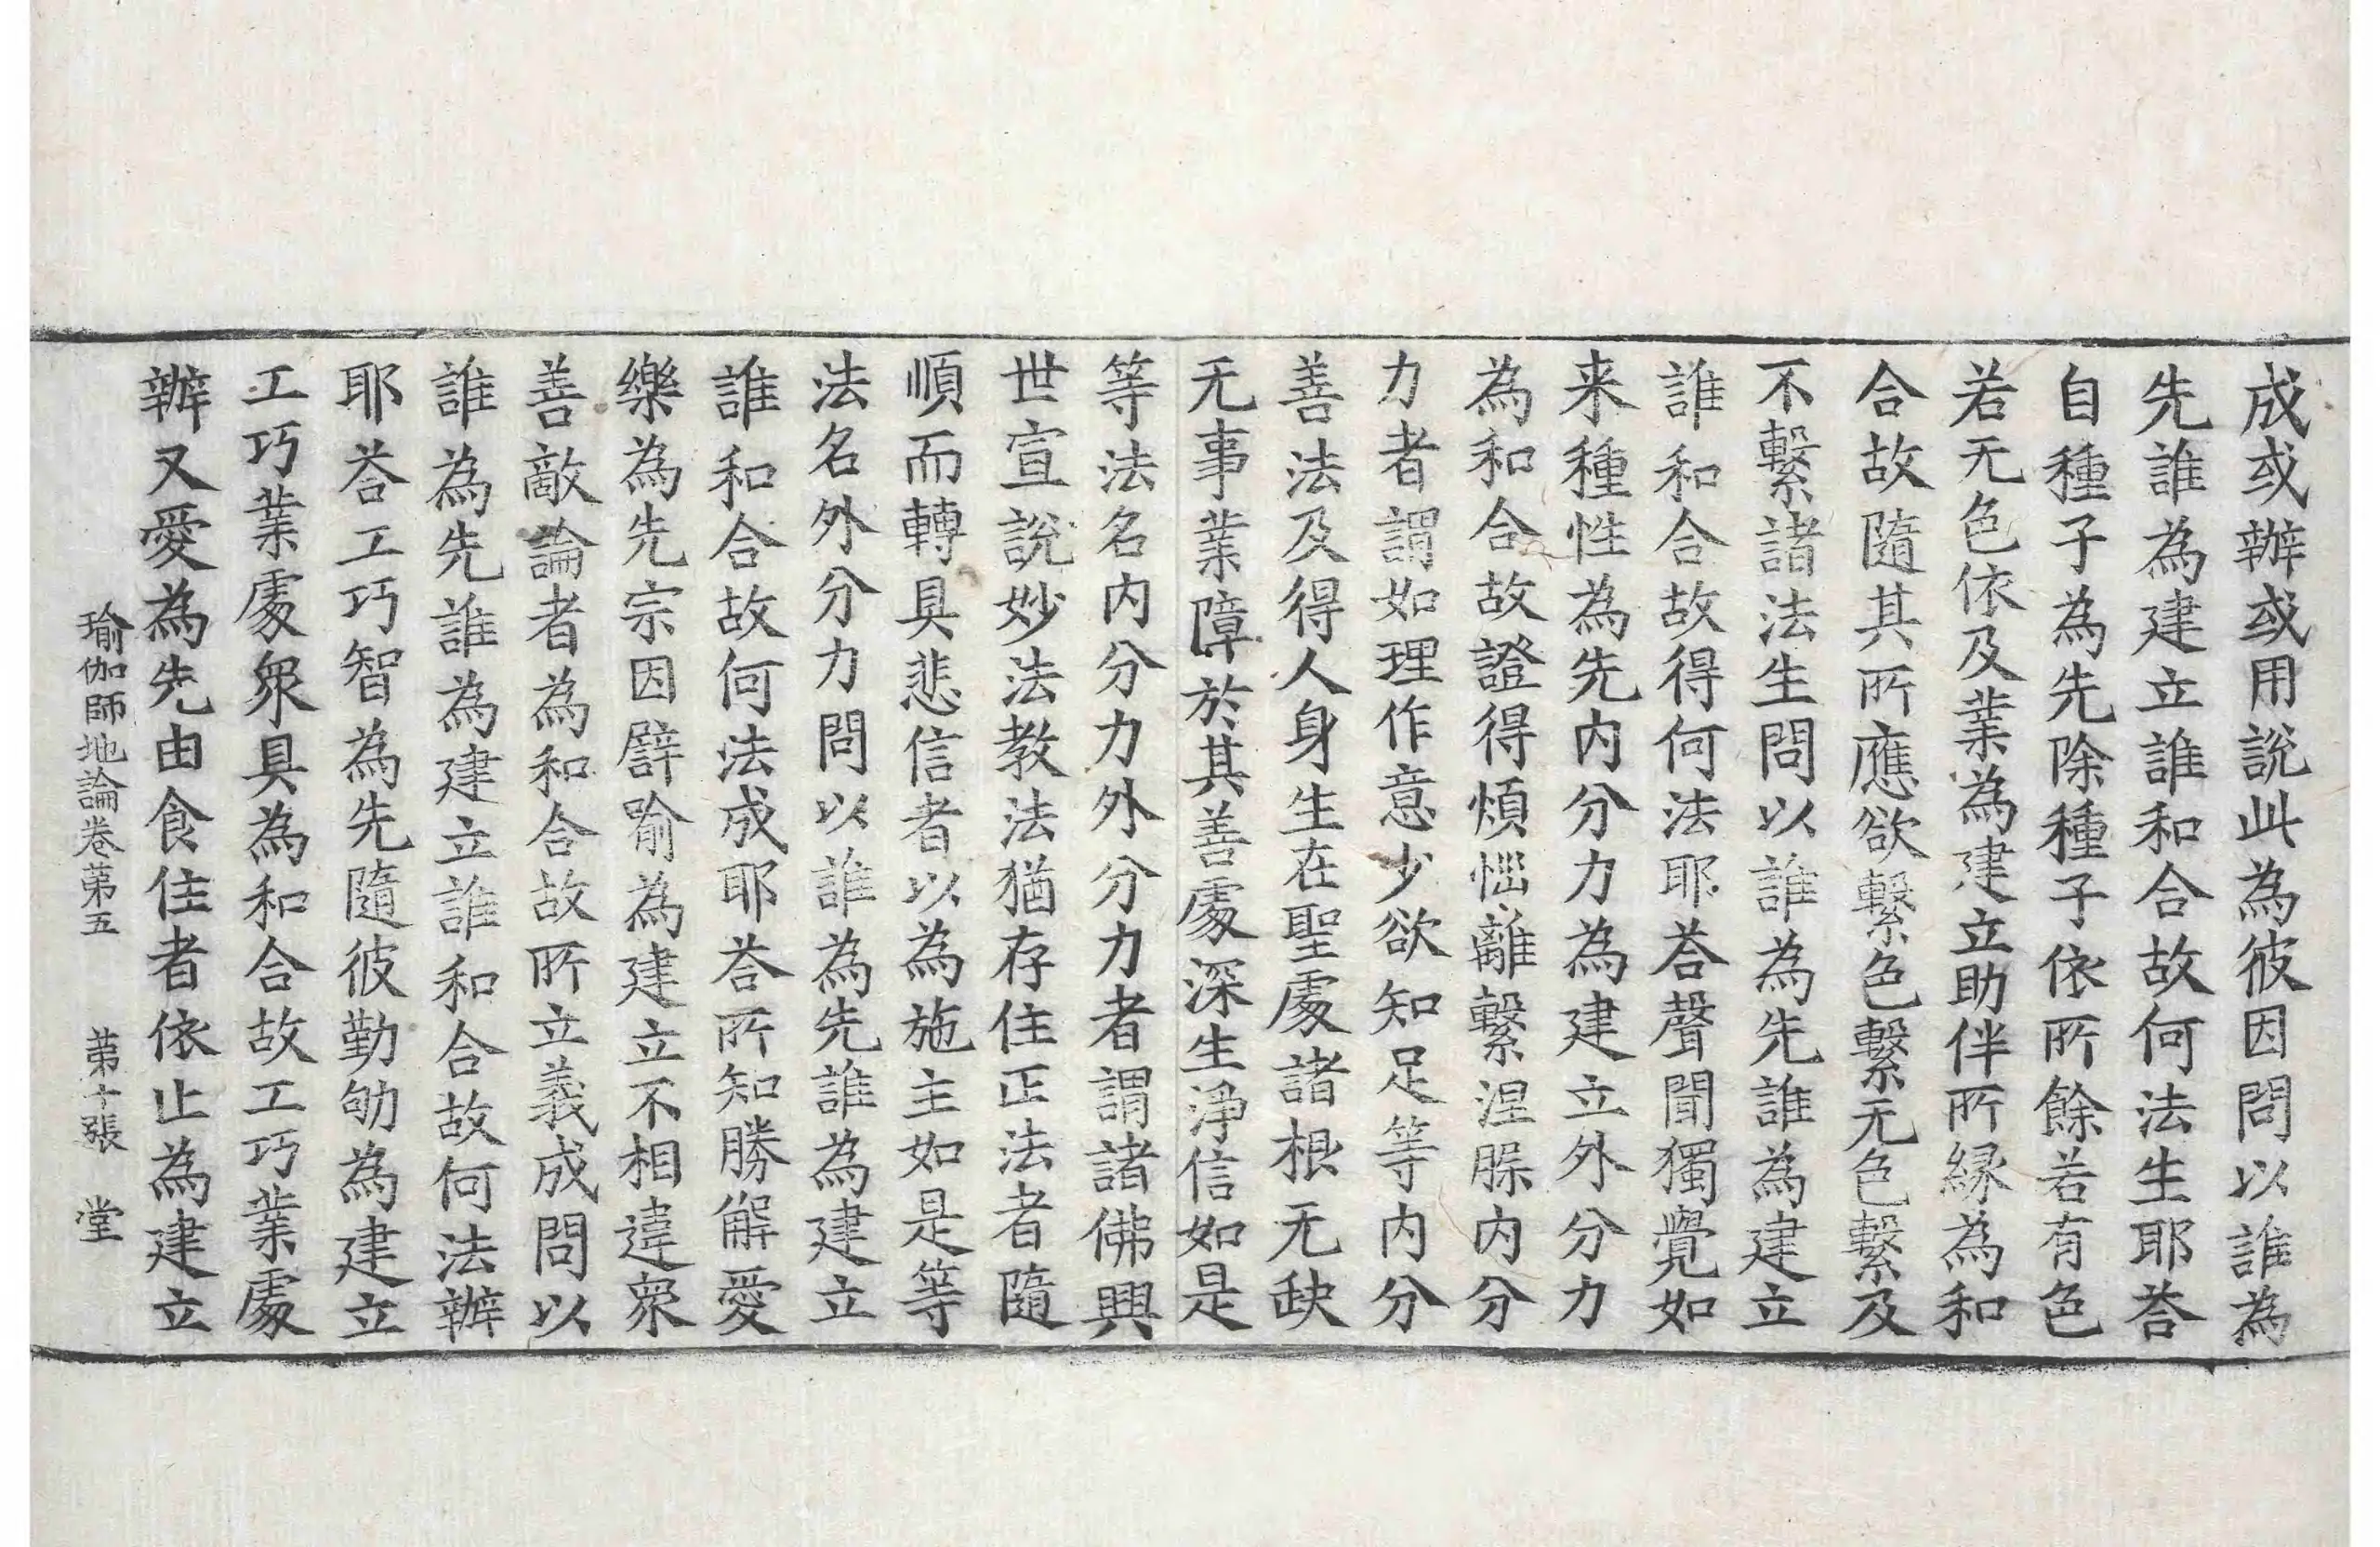 成或辦或用說此為彼因問以誰為
先誰為建立誰和合故何法生耶荅
自種子為先除種子依所餘若有色
若无色依及業為建立助伴所緣為和
合故隨其所應欲繫色繫无色繫及
不繫諸法生問以誰為先誰為建立
誰和合故得何法耶荅聲聞獨覺如
来種性為先內分力為建立外分力
為和合故證得煩惱離繫涅槃內分
力者謂如理作意少欲知足等內分
善法及得人身生在聖處諸根无缺
无事業障於其善處深生淨信如是
等法名內分力外分力者謂諸佛興
世宣說妙法教法猶存住正法者隨
順而轉具悲信者以為施主如是等
法名外分力問以誰為先誰為建立
誰和合故何法成耶荅所知勝解愛
樂為先宗因譬喻為建立不相違衆
善敵論者為和合故所立義成問以
誰為先誰為建立誰和合故何法辦
耶荅工巧智為先隨彼勤劬為建立
工巧業處衆具為和合故工巧業處
辦又愛為先由食住者依止為建立
瑜伽師地論卷第五 第十張 堂